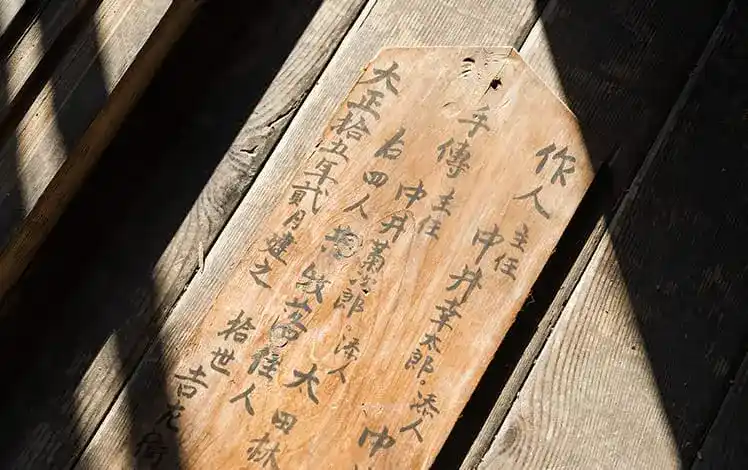 作人 主任 中井幸太郎。添人 中
手傳 主任 中井菊次郎。添人 大田林
右四人共 住人
大正拾五年貳月建之 拾世 吉左衛